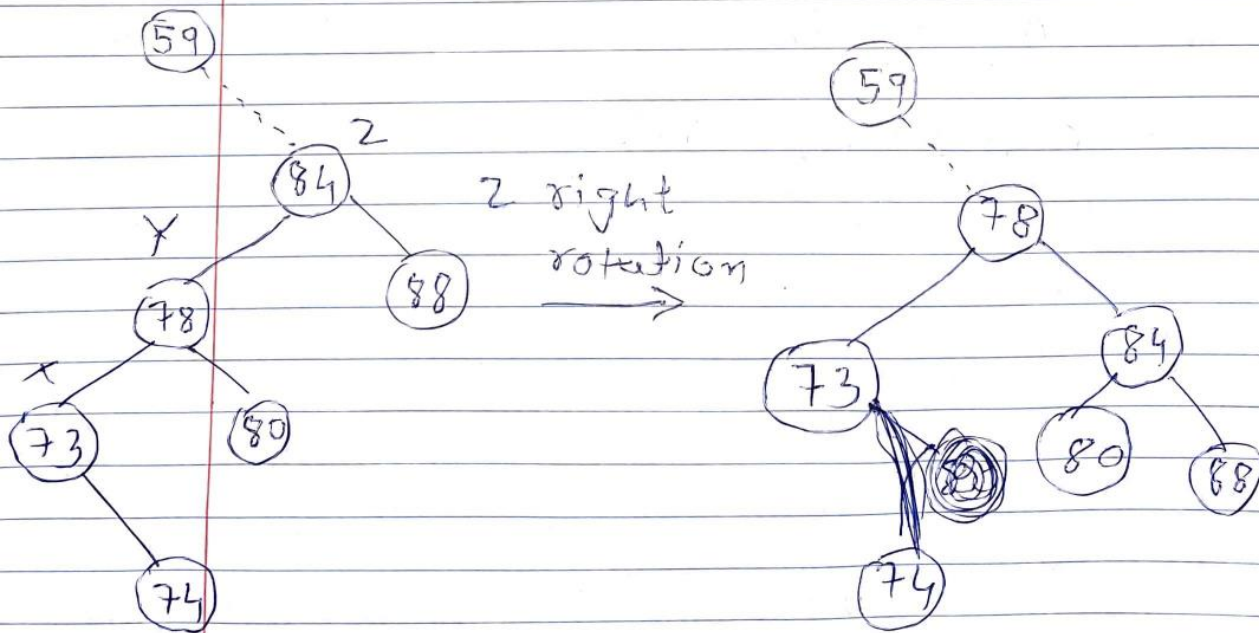 59
84 Z
Y
78
88
X
73
80
74
Z right
rotation
59
78
73
84
80
88
74